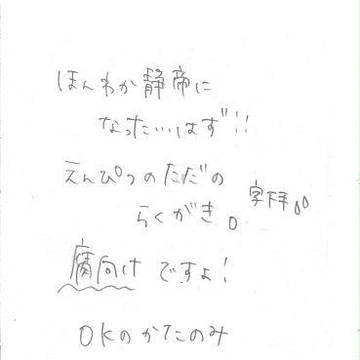 ほんわか静帝に
なったいはず!!
えんぴつのただの
らくがき。字下手。。
腐向けですよ!
OKのかたのみ